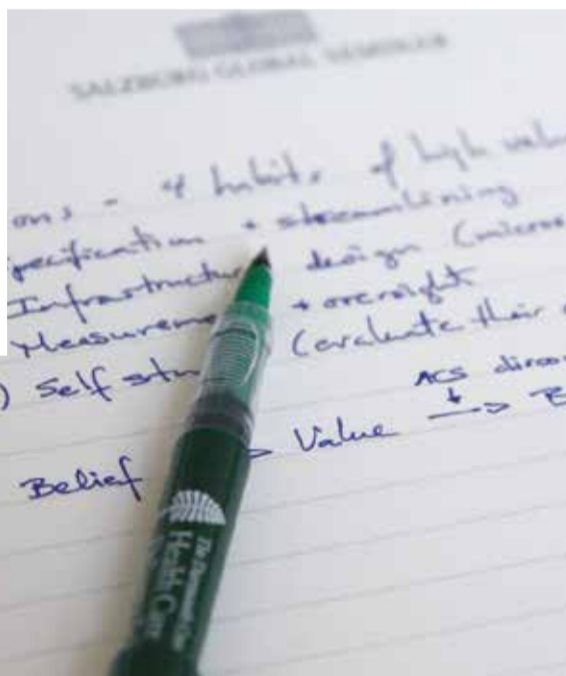 SALZBURG GLOBAL SEMINAR
ons - 4 habits of high valu
pecification + streamlining
Infrastructure design (micros
Measureme + oversight
) Self stu (evaluate their
ACS
Belief > Value → B
The Dartmouth Ctr
Health Care